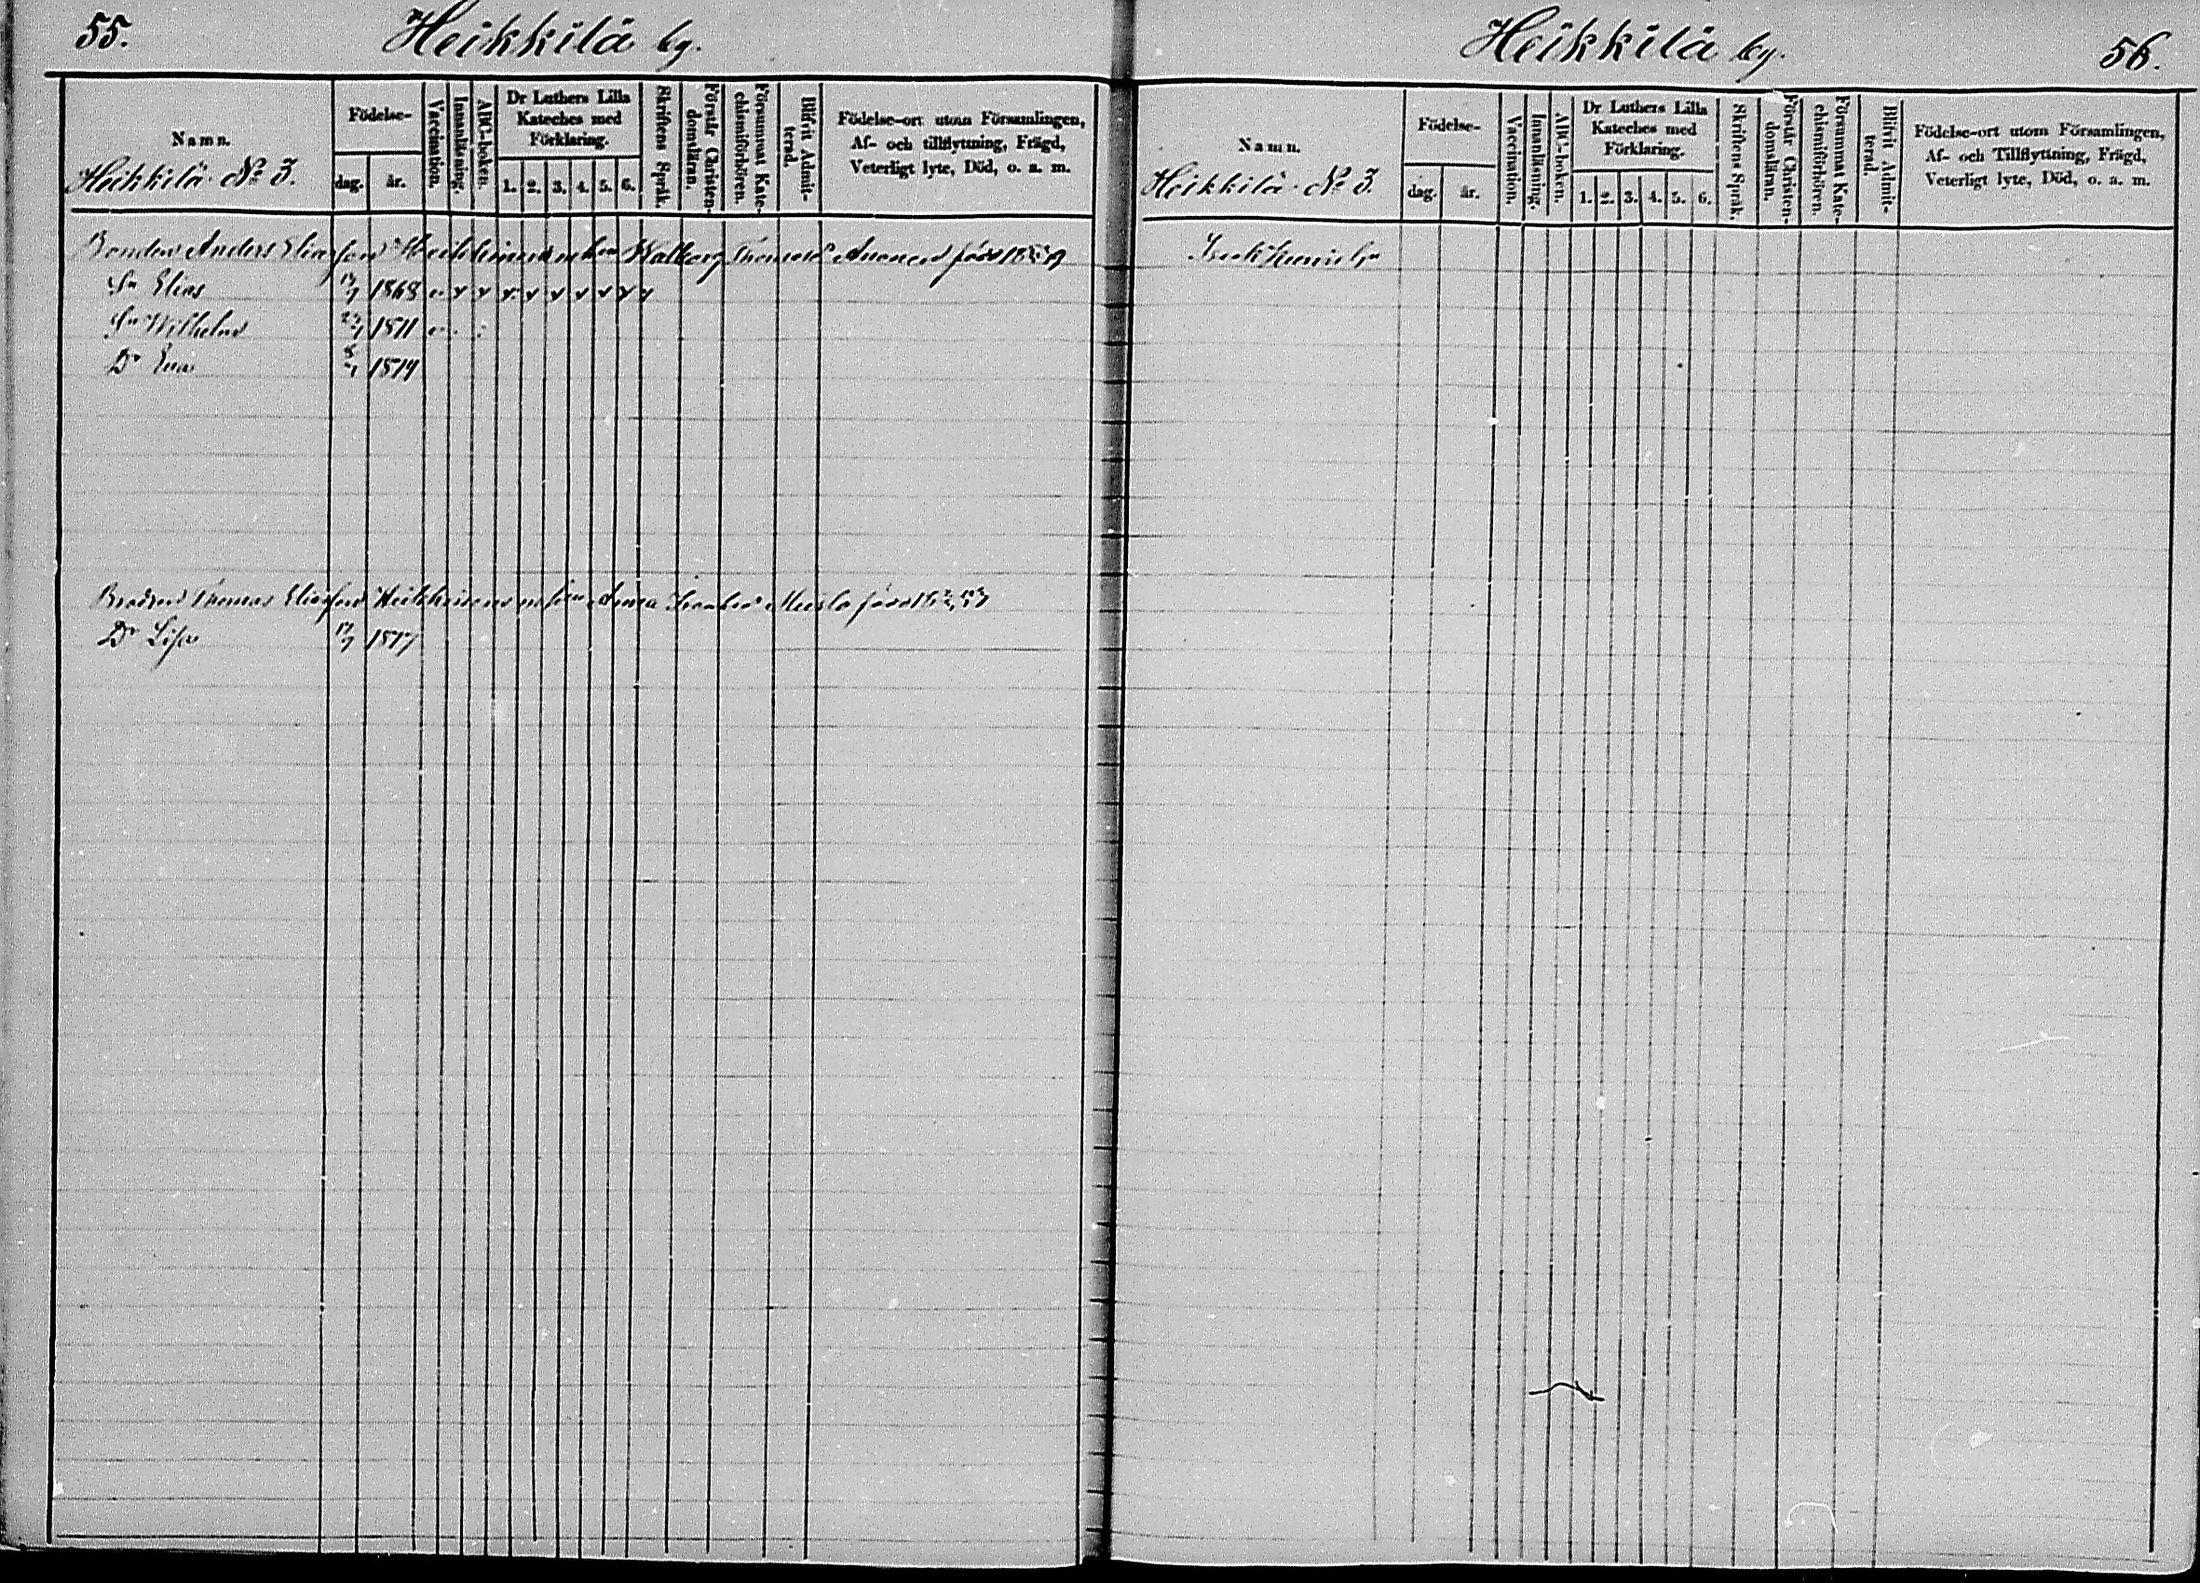 55.
Heikkilä by.
Namn.
Heikkilä № 3.
Födelse-
dag.
år.
Vaccination.
Innanläsning.
ABC-boken.
Dr Luthers Lilla
Kateches med
Förklaring.
1. 2. 3. 4. 5. 6.
Skriftens Språk.
Förstår Christen-
domsläran.
Försummat Kate-
chismiförhören.
Blifvit Admit-
terad.
Födelse-ort utom Församlingen,
Af- och tillflyttning, Frägd,
Veterligt lyte, Död, o. a. m.
Bonden Anders Eliasson Heikkinen Walborg Thomasd Anonen född 18
Sn Elias 1868 v v v v v v v v v v
Sn Wilhelm 1871
Dr Eva 1874
Brodren Thomas Eliasson Heikkinen Anna född 18
Dr Lisa 1877
Heikkilä by.
56.
Namn.
Heikkilä № 3.
Födelse-
dag.
år.
Vaccination.
Innanläsning.
ABC-boken.
Dr Luthers Lilla
Kateches med
Förklaring.
1. 2. 3. 4. 5. 6.
Skriftens Språk.
Förstår Christen-
domsläran.
Försummat Kate-
chismiförhören.
Blifvit Admit-
terad.
Födelse-ort utom Församlingen,
Af- och Tillflyttning, Frägd,
Veterligt lyte, Död, o. a. m.